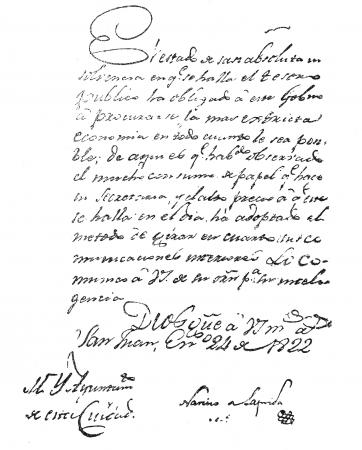 El estado de tan absoluta in
solvencia en q.e se halla el tesoro
publico ha obligado á este Gobno
á procurarse la mas extricta
economia en todo cuanto le sea posi
ble; de aqui es q.e hab.do observado
el mucho consumo de papel q.e hace
su Secretaria, y el alto precio á q.e este
se halla en el dia, há adoptado el
metodo de girar en cuarto sus co
municaciones Lo co
munico á V.S. de su orn p.a su inteli
gencia.
Dios gũe á V.S. m.s a.s
San Juan, En.o 24 de 1822
M. Y. Ayuntam.to
de esta Ciudad.
Narciso de Laprida